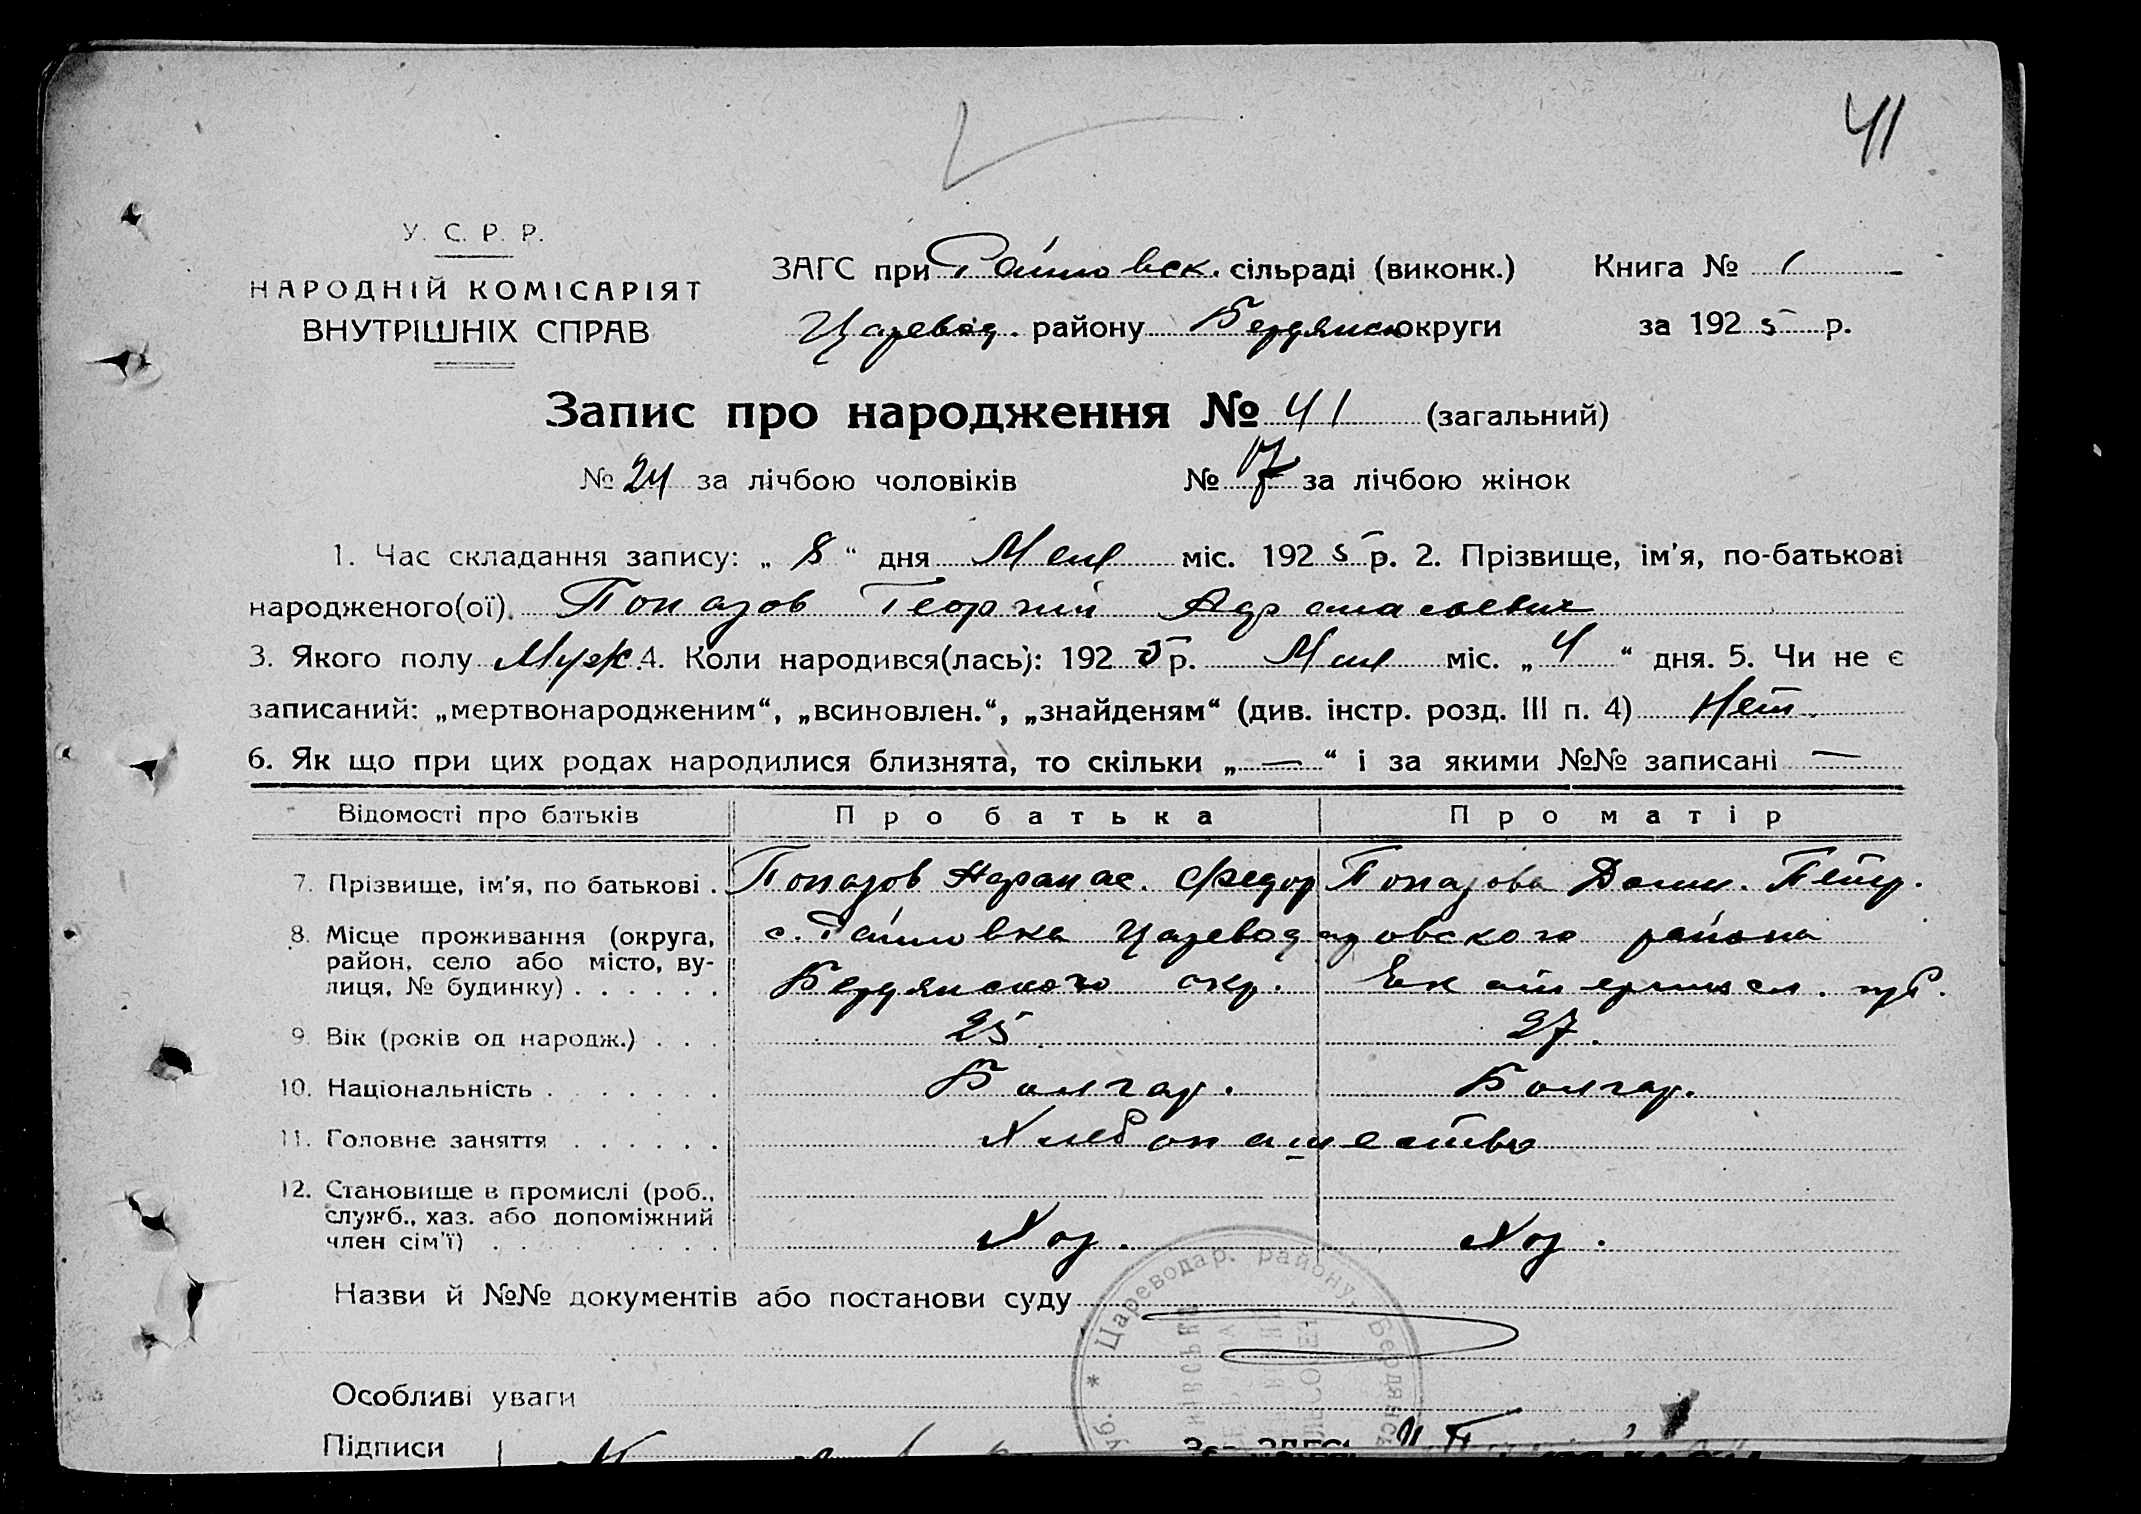 41
У. С. Р. Р.
НАРОДНІЙ КОМІСАРІЯТ
ВНУТРІШНІХ СПРАВ
ЗАГС при Райновск. сільраді (виконк.)
Царевод. району Бердянск округи
Книга № 1
за 1925 р.
Запис про народження № 41 (загальний)
№ 24 за лічбою чоловіків № 17 за лічбою жінок
1. Час складання запису: „ 8 “ дня міс. 1925 р. 2. Прізвище, ім'я, по-батькові
народженого(ої). Попазов Георгий Афанасьевич
3. Якого полу Муж. 4. Коли народився(лась): 1925 р. міс. „ 4 “ дня. 5. Чи не є
записаний: „мертвонародженим“, „всиновлен.“, „знайденям“ (див. інстр. розд. III п. 4) Нет.
6. Як що при цих родах народилися близнята, то скільки „ — “ і за якими №№ записані —
Відомості про батьків Про батька Про матір
7. Прізвище, ім'я, по батькові . Попазов Афанас. Федор Попазова Домн. Петр.
8. Місце проживання (округа, район, село або місто, вулиця, № будинку) . . . . . . с. Райновка Цареводаровского района
Бердянского окр. Екатеринсл. губ.
9. Вік (років од народж.) . . . 25 27.
10. Національність . . . . . . . Болгар. Болгар.
11. Головне заняття . . . . . . Хлебопашество
12. Становище в промислі (роб., служб., хаз. або допоміжний член сім'ї) . . . . . . . Хоз. Хоз.
Назви й №№ документів або постанови суду
Цареводар. району, Бердянсь
Особливі уваги
Підписи
Зав. ЗАГС'